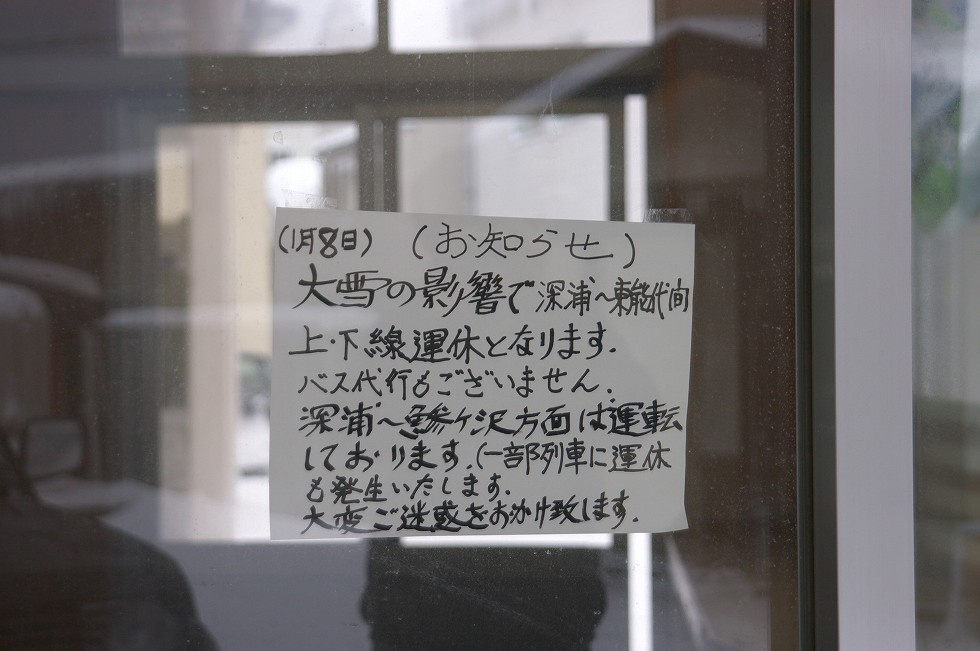 (1月8日) (お知らせ)
大雪の影響で深浦〜東能代間
上・下線運休となります.
バス代行もございません.
深浦〜鰺ヶ沢方面は運転
しております.(一部列車に運休
も発生いたします.
大変ご迷惑をおかけ致します.